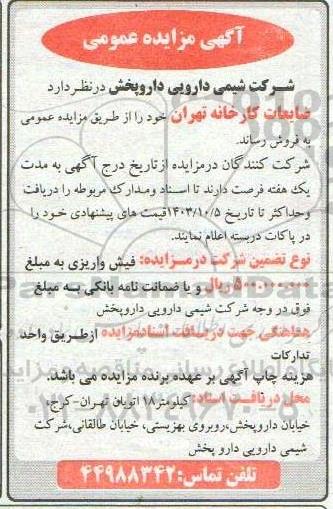 آگهی مزایده عمومی
شرکت شیمی دارویی داروپخش درنظر دارد
ضایعات کارخانه تهران خود را از طریق مزایده عمومی
به فروش رساند.
شرکت کنندگان درمزایده از تاریخ درج آگهی به مدت
یک هفته فرصت دارند تا اسناد ومدارک مربوطه را دریافت
وحداکثر تا تاریخ ۱۴۰۳/۱۰/۵قیمت های پیشنهادی خود را
در پاکات دربسته اعلام نمایند.
نوع تضمین شرکت درمزایده: فیش واریزی به مبلغ
۵۰۰.۰۰۰.۰۰۰ریال و یا ضمانت نامه بانکی به مبلغ
فوق در وجه شرکت شیمی دارویی داروپخش
هماهنگی جهت دریافت اسنادمزایده ازطریق واحد
تدارکات
هزینه چاپ آگهی بر عهده برنده مزایده می باشد.
محل دریافت اسناد: کیلومتر۱۸ اتوبان تهران-کرج،
خیابان داروپخش،روبروی بهزیستی، خیابان طالقانی،شرکت
شیمی دارویی دارو پخش
تلفن تماس:۴۴۹۸۸۳۴۲